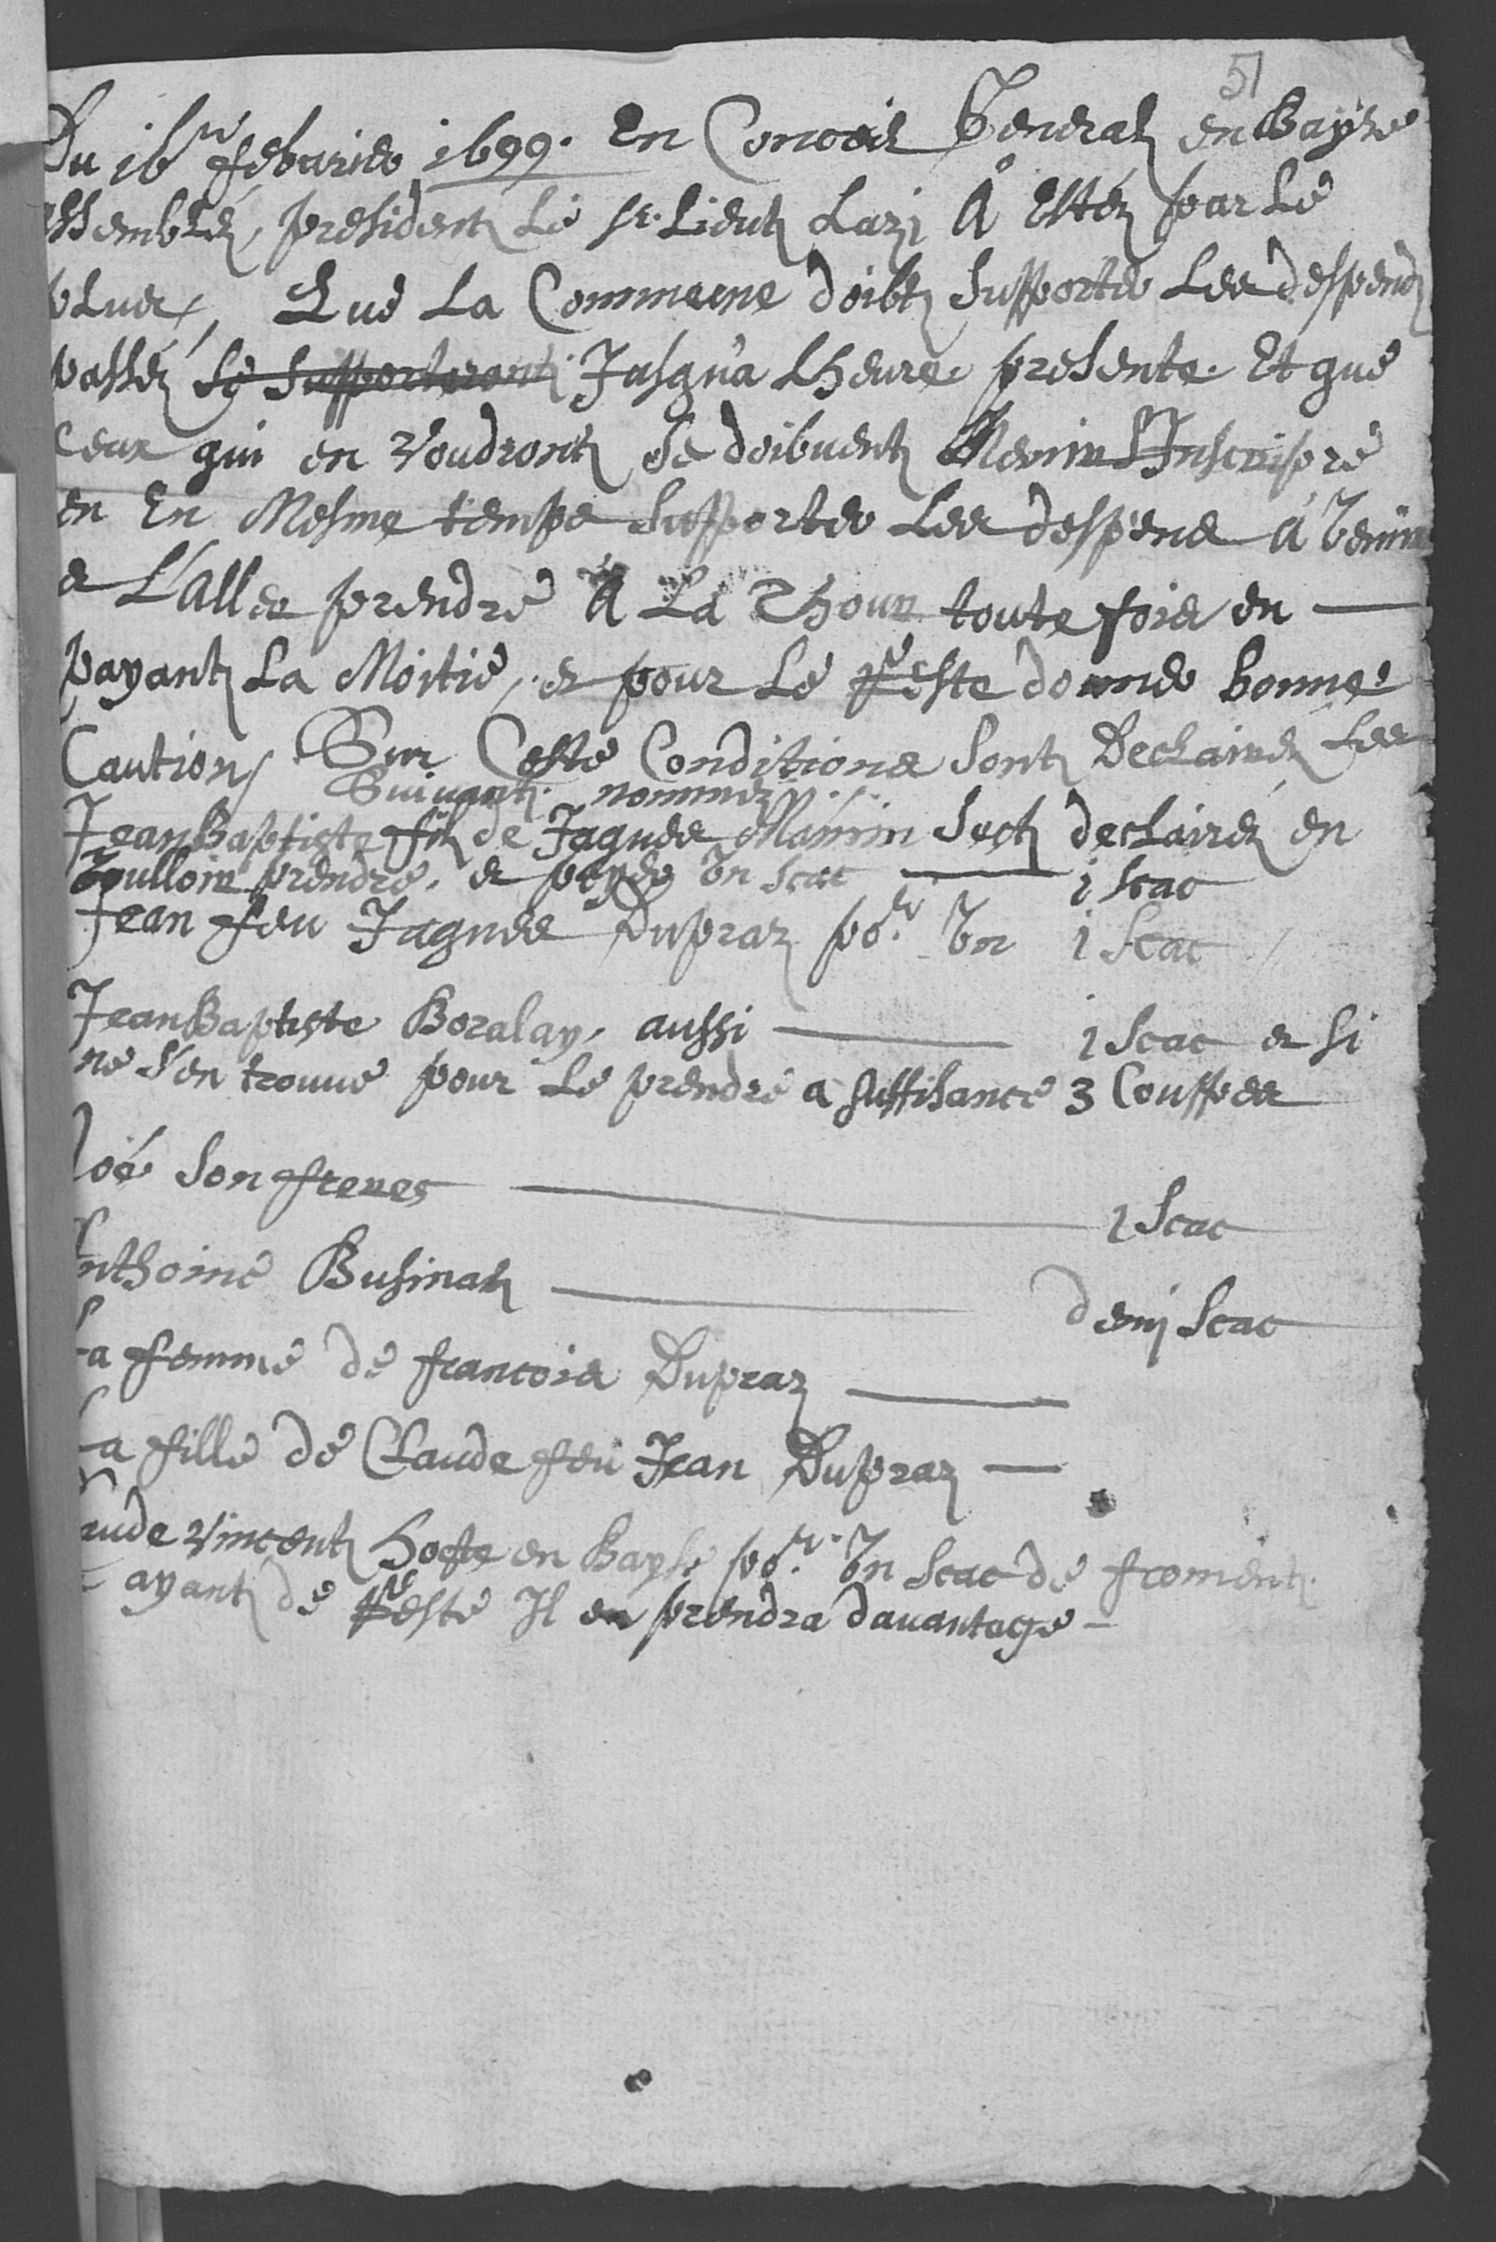 51
Du 16me febvrier 1699. En Conceil General en Bayse
assemblez, president Le sr. Lieut Lazi A Estéz par Le
plus, Que La Commune doibt Supporter Les despend
passéz se supporteront Jusqu'a Lheure presente. Et que
ceux qui en Voudront se doibvent Venir Inscripre
en En Mesme temps Supporter Les despens á Venir
a L'aller prendre A La Thour toutefois en —
payant La Moitie, et pour Le Reste donner bonne
Caution, Sur Ceste Conditions Sont Declairéz Les
Suivants nommez.
Jean Baptiste filz de Jaques Mamin Sect declairéz en
Voulloir prendre, et payer Un Scac — 1 Scac
Jean feu Jaques Dupraz por. Un 1 Scac
Jean Baptiste Boralay, aussi — 1 Scac et si
ne S'en trouve pour Le prendre a suffisance 3 Couppes
Noé Son freres — 1 Scac
Anthoine Businat — demj Scac
La femme de francois Dupraz —
La fille de Claude feu Jean Dupraz —
Claude Vincent Hoste en Bayse por. Un Scac de froment.
ayant de Reste Il en prendra davantage —